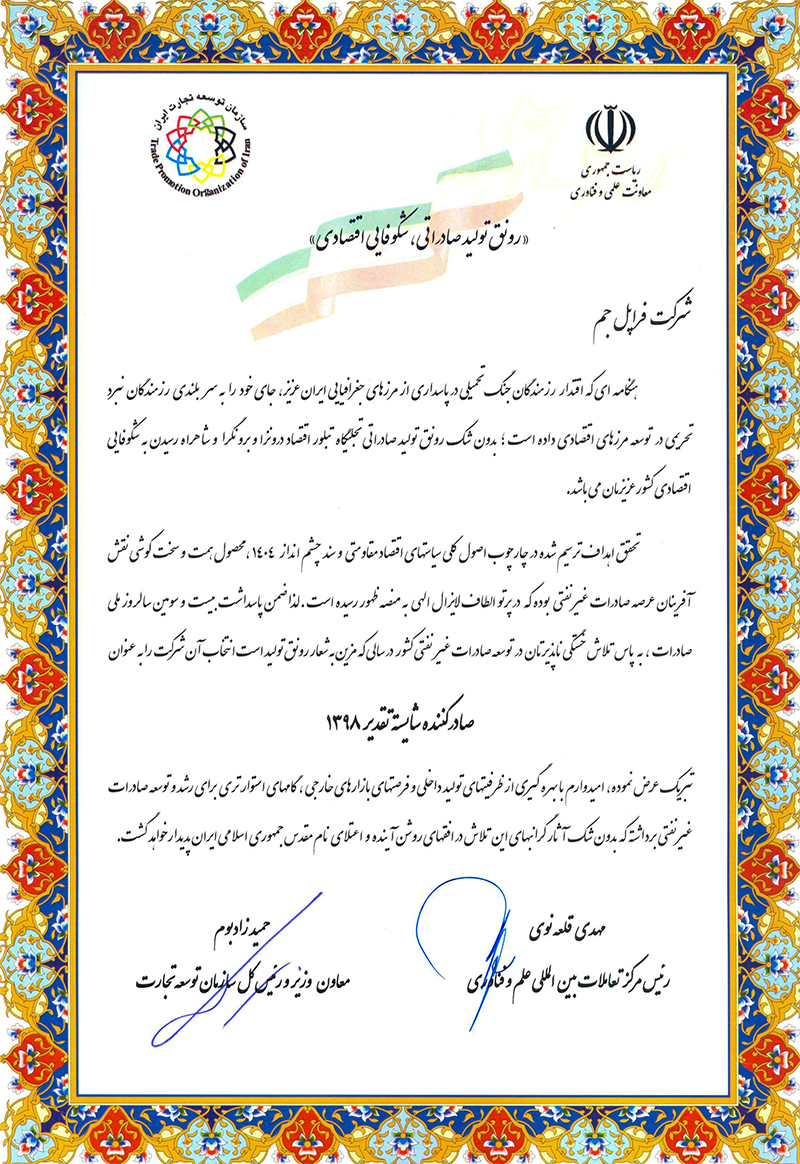 سازمان توسعه تجارت ایران
Trade Promotion Organization of Iran
ریاست جمهوری
معاونت علمی و فناوری
«رونق تولید صادراتی، شکوفایی اقتصادی»
شرکت فراپل جم
هنگامه ای که اقتدار رزمندگان جنگ تحمیلی در پاسداری از مرزهای جغرافیایی ایران عزیز، جای خود را به سربلندی رزمندگان نبرد
تحریمی در توسعه مرزهای اقتصادی داده است ؛ بدون شک رونق تولید صادراتی تجلیگاه تبلور اقتصاد درونزا و برونگرا و شاهراه رسیدن به شکوفایی
اقتصادی کشور عزیزمان می باشد.
تحقق اهداف ترسیم شده در چارچوب اصول کلی سیاستهای اقتصاد مقاومتی و سند چشم انداز ۱۴۰۴، محصول همت و سخت کوشی نقش
آفرینان عرصه صادرات غیرنفتی بوده که در پرتو الطاف لایزال الهی به منصه ظهور رسیده است. لذا ضمن پاسداشت بیست و سومین سالروز ملی
صادرات ، به پاس تلاش خستگی ناپذیرتان در توسعه صادرات غیر نفتی کشور در سالی که مزین به شعار رونق تولید است انتخاب آن شرکت را به عنوان
صادرکننده شایسته تقدیر ۱۳۹۸
تبریک عرض نموده، امیدوارم با بهره گیری از ظرفیتهای تولید داخلی و فرصتهای بازارهای خارجی ، گامهای استوارتری برای رشد و توسعه صادرات
غیرنفتی برداشته که بدون شک آثار گرانبهای این تلاش در افقهای روشن آینده و اعتلای نام مقدس جمهوری اسلامی ایران پدیدار خواهد گشت.
مهدی قلعه نوی
رئیس مرکز تعاملات بین المللی علم و فناوری
حمید زادبوم
معاون وزیر و رئیس کل سازمان توسعه تجارت